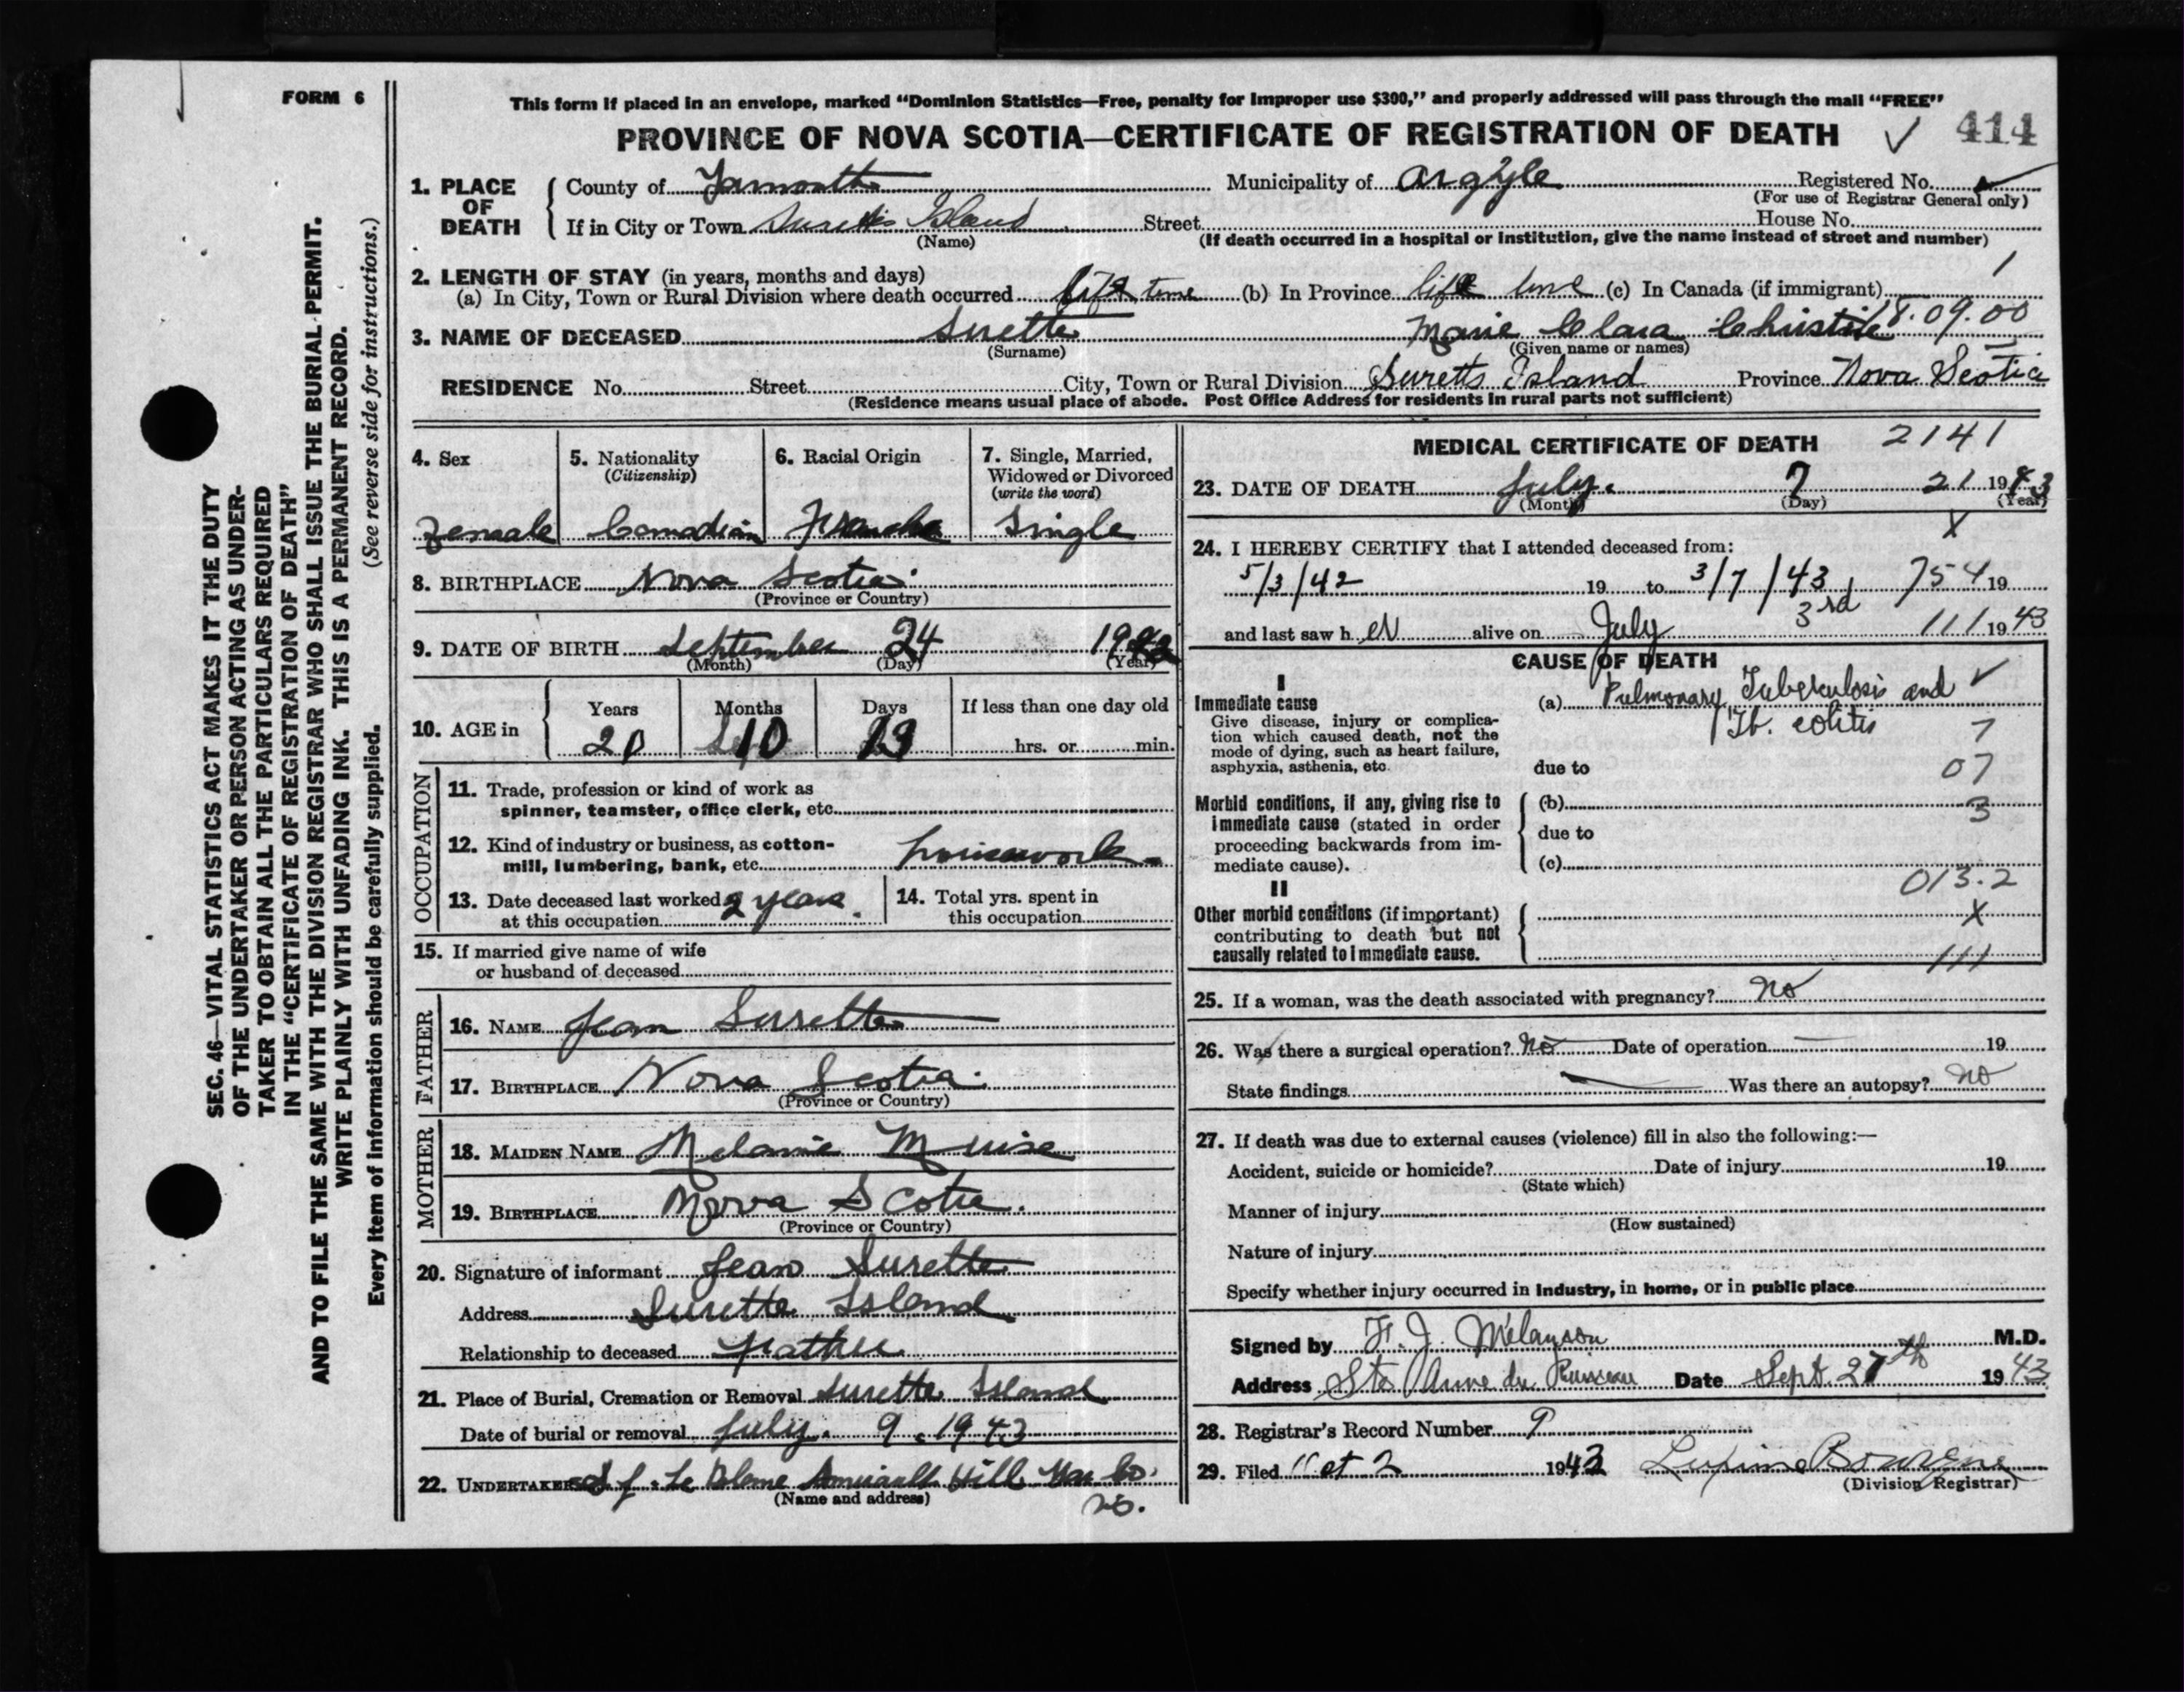 FORM 6
This form if placed in an envelope, marked “Dominion Statistics—Free, penalty for improper use $300,” and properly addressed will pass through the mail “FREE”
PROVINCE OF NOVA SCOTIA—CERTIFICATE OF REGISTRATION OF DEATH
414
1. PLACE OF DEATH
County of Yarmouth Municipality of Argyle Registered No.
(For use of Registrar General only)
If in City or Town Surettes Island Street House No.
(Name) (If death occurred in a hospital or institution, give the name instead of street and number)
2. LENGTH OF STAY (in years, months and days)
(a) In City, Town or Rural Division where death occurred life time (b) In Province life time (c) In Canada (if immigrant)
3. NAME OF DECEASED Surette Marie Clara Christine 18.09.00
(Surname) (Given name or names)
RESIDENCE No. Street City, Town or Rural Division Suretts Island Province Nova Scotia
(Residence means usual place of abode. Post Office Address for residents in rural parts not sufficient)
4. Sex
Female
5. Nationality
(Citizenship)
Canadian
6. Racial Origin
7. Single, Married, Widowed or Divorced
(write the word)
Single
8. BIRTHPLACE Nova Scotia
(Province or Country)
9. DATE OF BIRTH September 24
(Month) (Day) (Year)
10. AGE in
Years Months Days If less than one day old
20 10 hrs. or min.
OCCUPATION
11. Trade, profession or kind of work as
spinner, teamster, office clerk, etc.
12. Kind of industry or business, as cotton-
mill, lumbering, bank, etc. housework
13. Date deceased last worked 2 years.
at this occupation
14. Total yrs. spent in
this occupation
15. If married give name of wife
or husband of deceased
FATHER
16. NAME Jean Surette
17. BIRTHPLACE Nova Scotia
(Province or Country)
MOTHER
18. MAIDEN NAME Melanie Muise
19. BIRTHPLACE Nova Scotia
(Province or Country)
20. Signature of informant Jean Surette
Address Surette Island
Relationship to deceased Father
21. Place of Burial, Cremation or Removal Surette Island
Date of burial or removal July 9, 1943
22. UNDERTAKER Le Blanc Amirault Hill Yar Co.
(Name and address)
N.S.
MEDICAL CERTIFICATE OF DEATH 2141
23. DATE OF DEATH July 7 21 1943
(Month) (Day) (Year)
X
24. I HEREBY CERTIFY that I attended deceased from:
5/3/42 19 to 3/7/43 754 19
and last saw her alive on July 3rd 111 1943
CAUSE OF DEATH
I
Immediate cause
Give disease, injury or complica-
tion which caused death, not the
mode of dying, such as heart failure,
asphyxia, asthenia, etc.
(a) Pulmonary Tuberculosis and
Tb. colitis
7
due to 07
Morbid conditions, if any, giving rise to
immediate cause (stated in order
proceeding backwards from im-
mediate cause).
(b) 3
due to
(c)
013.2
II
Other morbid conditions (if important)
contributing to death but not
causally related to immediate cause.
X
111
25. If a woman, was the death associated with pregnancy? No
26. Was there a surgical operation? No Date of operation 19
State findings Was there an autopsy? No
27. If death was due to external causes (violence) fill in also the following:—
Accident, suicide or homicide? Date of injury 19
(State which)
Manner of injury
(How sustained)
Nature of injury
Specify whether injury occurred in industry, in home, or in public place
Signed by F. J. Melanson M.D.
Address Ste Anne du Ruisseau Date Sept. 27th 1943
28. Registrar's Record Number 9
29. Filed Oct 2 1943
(Division Registrar)
SEC. 46—VITAL STATISTICS ACT MAKES IT THE DUTY
OF THE UNDERTAKER OR PERSON ACTING AS UNDER-
TAKER TO OBTAIN ALL THE PARTICULARS REQUIRED
IN THE “CERTIFICATE OF REGISTRATION OF DEATH”
AND TO FILE THE SAME WITH THE DIVISION REGISTRAR WHO SHALL ISSUE THE BURIAL PERMIT.
WRITE PLAINLY WITH UNFADING INK. THIS IS A PERMANENT RECORD.
Every item of information should be carefully supplied. (See reverse side for instructions.)